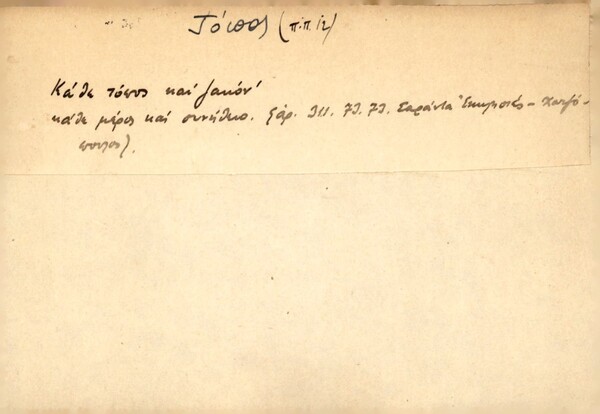 Τόπος (π.π. 12)
Κάθε τόπος καί ζακόν'
κάθε μέρος καί συνήθειο. (ἀρ. 311. 73. 73. Σαράντα Ἐκκλησιές -